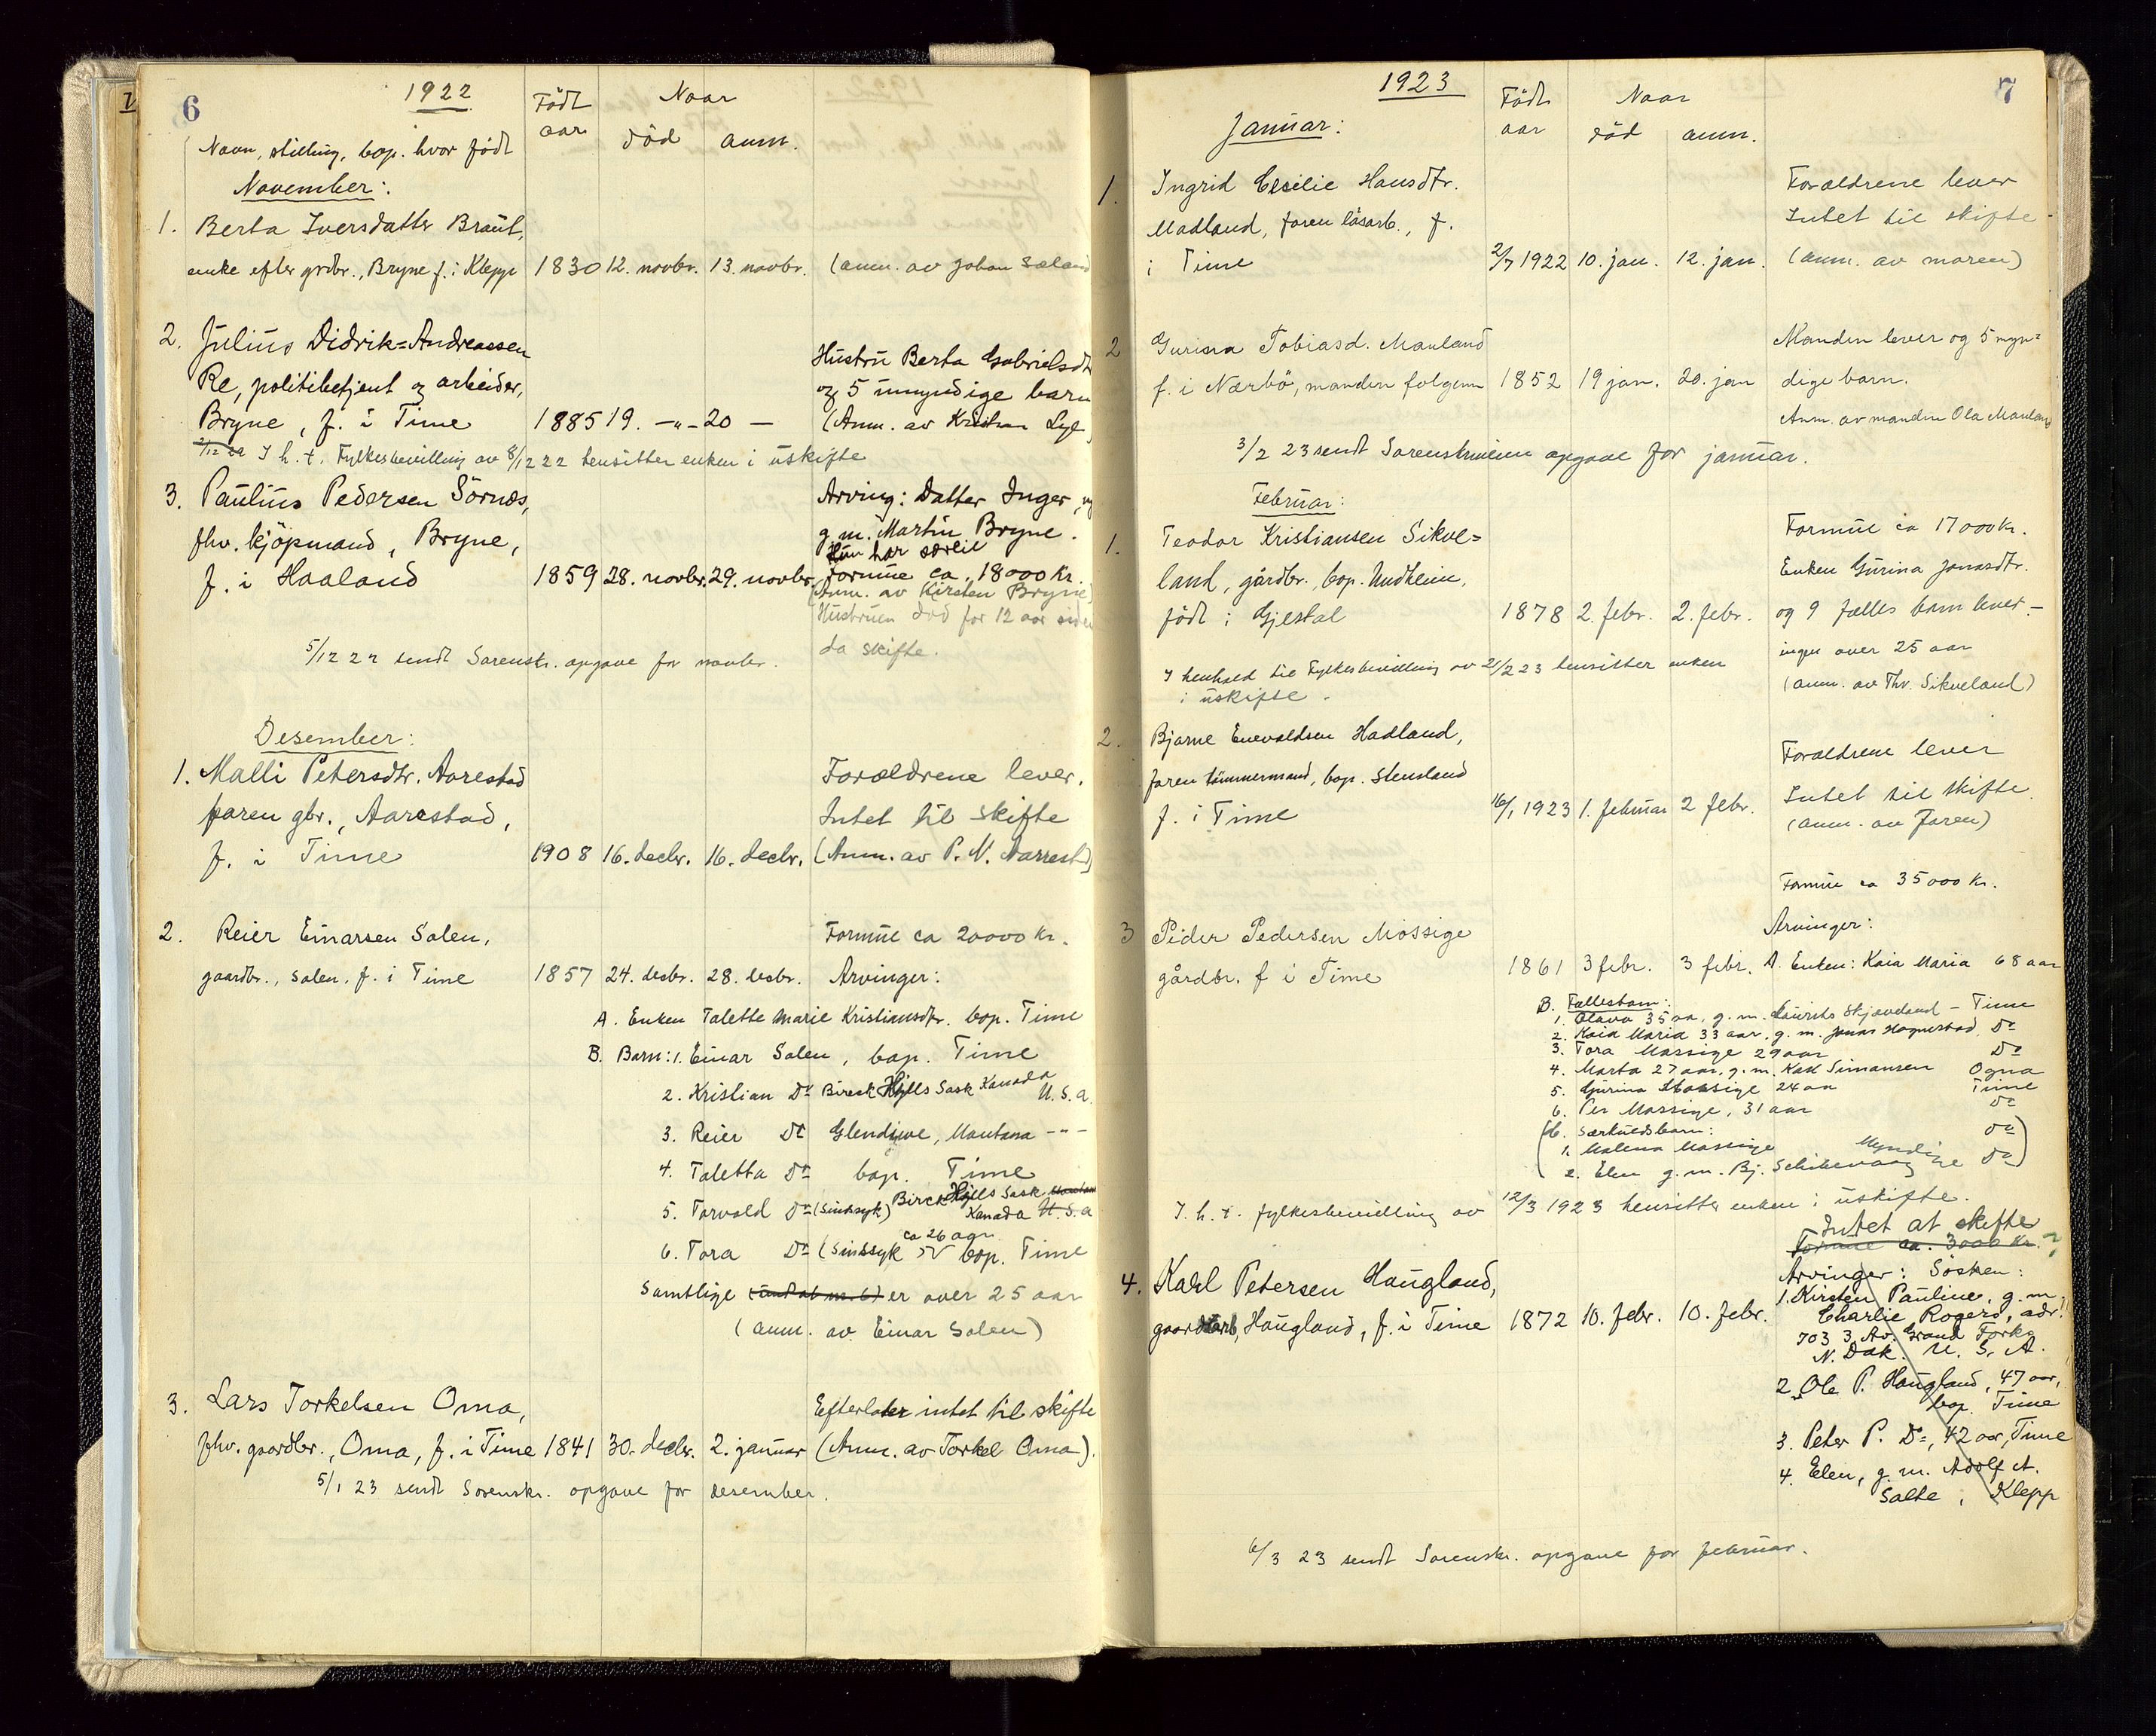 6
1922
Født
aar
Naar
død
anm.
Navn, stilling, bop. hvor født
November:
1. Berta Iversdatter Braut,
enke efter grdbr., Bryne f. i Klepp 1830 12. novbr. 13. novbr. (anm. av Johan Sæland
2. Julius Didrik=Andreassen
Re, politibetjent og arbeider,
Bryne, f. i Time 1885 19. -"- 20 —
Hustru Berta Gabrielsdt
og 5 umyndige barn
(Anm. av Kristian Lye)
I h. t. Fylkesbevilling av 8/12 22 hensitter enken i uskifte
3. Paulius Pedersen Sörnes,
fhv. kjöpmand, Bryne,
f. i Haaland 1859 28. novbr. 29. novbr.
Arving: Datter Inger,
g. m. Martin Bryne.
Hun har særeie
Formue ca. 18000 kr.
(Anm. av Kirsten Bryne)
Hustruen död for 12 aar siden
da skifte.
5/12 22 sendt Sorenskr. opgave for novbr.
Desember:
1. Malli Petersdtr. Aarestad
faren gbr., Aarestad,
f. i Time 1908 16. decbr. 16. decbr.
Forældrene lever.
Intet til skifte
(Anm. av P. N. Aarrestad)
2. Reier Einarsen Salen,
gaardbr., Salen, f. i Time 1857 24. desbr. 28. desbr.
Formue ca 20000 kr.
Arvinger:
A. Enken Talette Marie Kristiansdtr. bop. Time
B. Barn: 1. Einar Salen, bop. Time
2. Kristian Do Birsk Hylls Sask Kanada
U.S.a.
3. Reier Do Glendive, Montana -"-
4. Taletta Do bop. Time
5. Torvald Do (Sinssyk) Birck Hylls Sask
Kanada U.S.a
6. Tora Do (Sinssyk ca 26 aar) bop. Time
Samtlige (undtat nr. 6) er over 25 aar
(anm. av Einar Salen)
3. Lars Torkelsen Oma,
fhv. gaardbr., Oma, f. i Time 1841 30. decbr. 2. januar
Efterlater intet til skifte
(Anm. av Torkel Oma).
5/1 23 sendt Sorenskr. opgave for desember.
7
1923
Født
aar
Naar
død
anm.
Januar:
1. Ingrid Cesilie Hansdtr.
Madland, faren lösarb., f.
i Time 2/7 1922 10. jan. 12. jan.
Forældrene lever
Intet til skifte
(anm. av moren)
2 Gurina Tobiasd. Mauland
f. i Nærbö, manden folgemann 1852 19 jan. 20. jan
Manden lever og 5 myn=
dige barn.
Anm. av manden Ola Mauland
3/2 23 sendt Sorenskriveren opgave for januar.
Februar:
1. Teodor Kristiansen Sikve=
land, gårdbr. bop. Undheim,
födt i Gjestal 1878 2. febr. 2. febr.
Formue ca 17000 kr.
Enken Gurina Jonasdtr.
og 9 fælles barn lever —
ingen over 25 aar
(anm. av Thv. Sikveland)
I henhold til Fylkesbevilling av 21/2 23 hensitter enken
i uskifte.
2. Bjarne Enevaldsen Hadland,
faren tømmermand, bop. Stensland
f. i Time 16/1 1923 1. februar 2 febr.
Forældrene lever
Intet til skifte.
(anm. av faren)
3 Peder Pedersen Mossige
gårdbr. f i Time 1861 3 febr. 3 febr.
Formue ca 35000 kr.
Arvinger:
A. Enken: Kaia Maria 68 aar
B. Fællesbarn:
1. Olava 35 aa, g. m. Laurits Skjæveland - Time
2. Kaia Maria 33 aar, g. m. Jonas Hognestad Do
3. Tora Mossige 29 aar Do
4. Marta 27 aar, g. m. Karl Simonsen Ogna
5. Gurina Mossige 24 aa Time
6. Per Mossige, 31 aar Do
Særkuldsbarn: Do
1. Malena Mossige Myndige
2. Elen g. m. Bj. Do
I. h. t. fylkesbevilling av 12/3 1923 hensitter enken i uskifte.
4. Karl Petersen Haugland,
gaardarb, Haugland, f. i Time 1872 10. febr. 10. febr.
Intet at skifte
Formue ca. 3000 kr. ?
Arvinger: Søsken:
1. Kirsten Pauline, g. m.
Charlie Rogers, adr.
703 3. Av. Grand Forks
N. Dak. U. S. A.
2. Ole P. Haugland, 47 aar,
bop. Time
3. Peter P. Do, 42 aar, Time
4. Elen, g. m. Adolf A.
Salte, Klepp
6/3 23 sendt Sorenskr. opgave for februar.